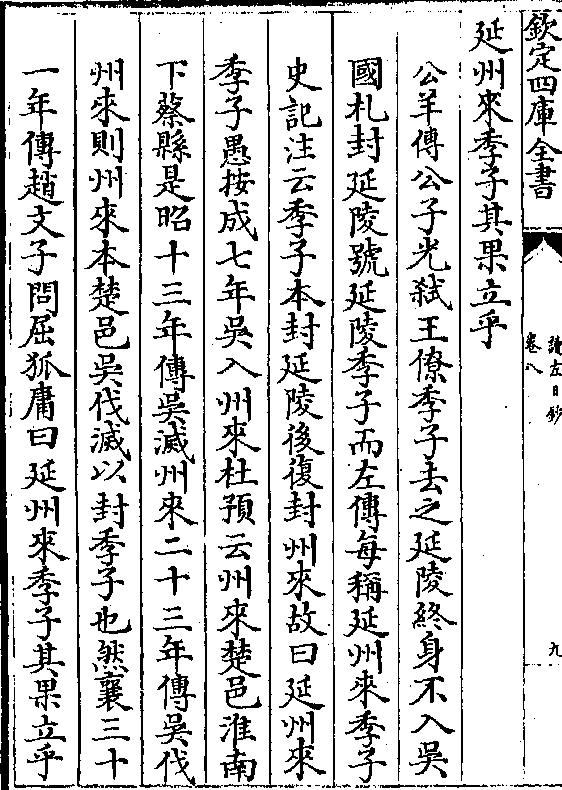 欽定四庫全書
讀左日鈔
卷八
九
延州來季子其果立乎
公羊傳公子光弑王僚季子去之延陵終身不入吳
國札封延陵號延陵季子而左傳每稱延州來季子
史記注云季子本封延陵後復封州來故曰延州來
季子愚按成七年吳入州來杜預云州來楚邑淮南
下蔡縣是昭十三年傳吳滅州來二十三年傳吳伐
州來則州來本楚邑吳伐滅以封季子也然襄三十
一年傳趙文子問屈狐庸曰延州來季子其果立乎